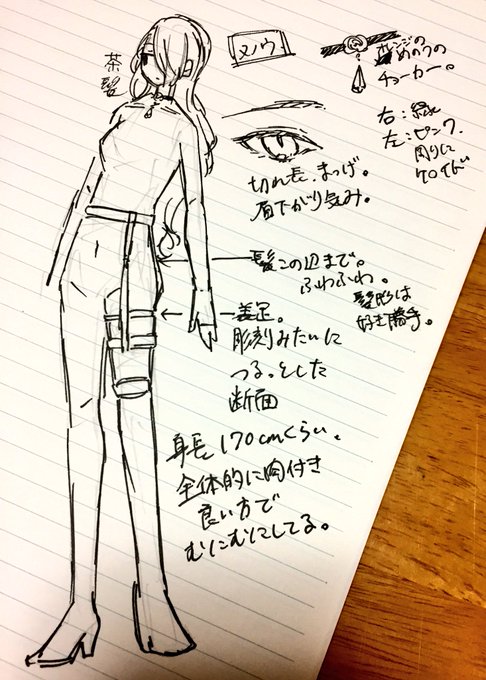 茶髪
ヌノウ
オレンジの
めのうの
チョーカー。
右:緑
左:ピンク
周りに
ケロイド
切れ長、まつげ。
眉下がり気み。
髪この辺まで。
ふわふわ。
髪形は
好き勝手。
義足。
彫刻みたいに
つるっとした
断面
身長170cmくらい。
全体的に肉付き
良い方で
むにむにしてる。